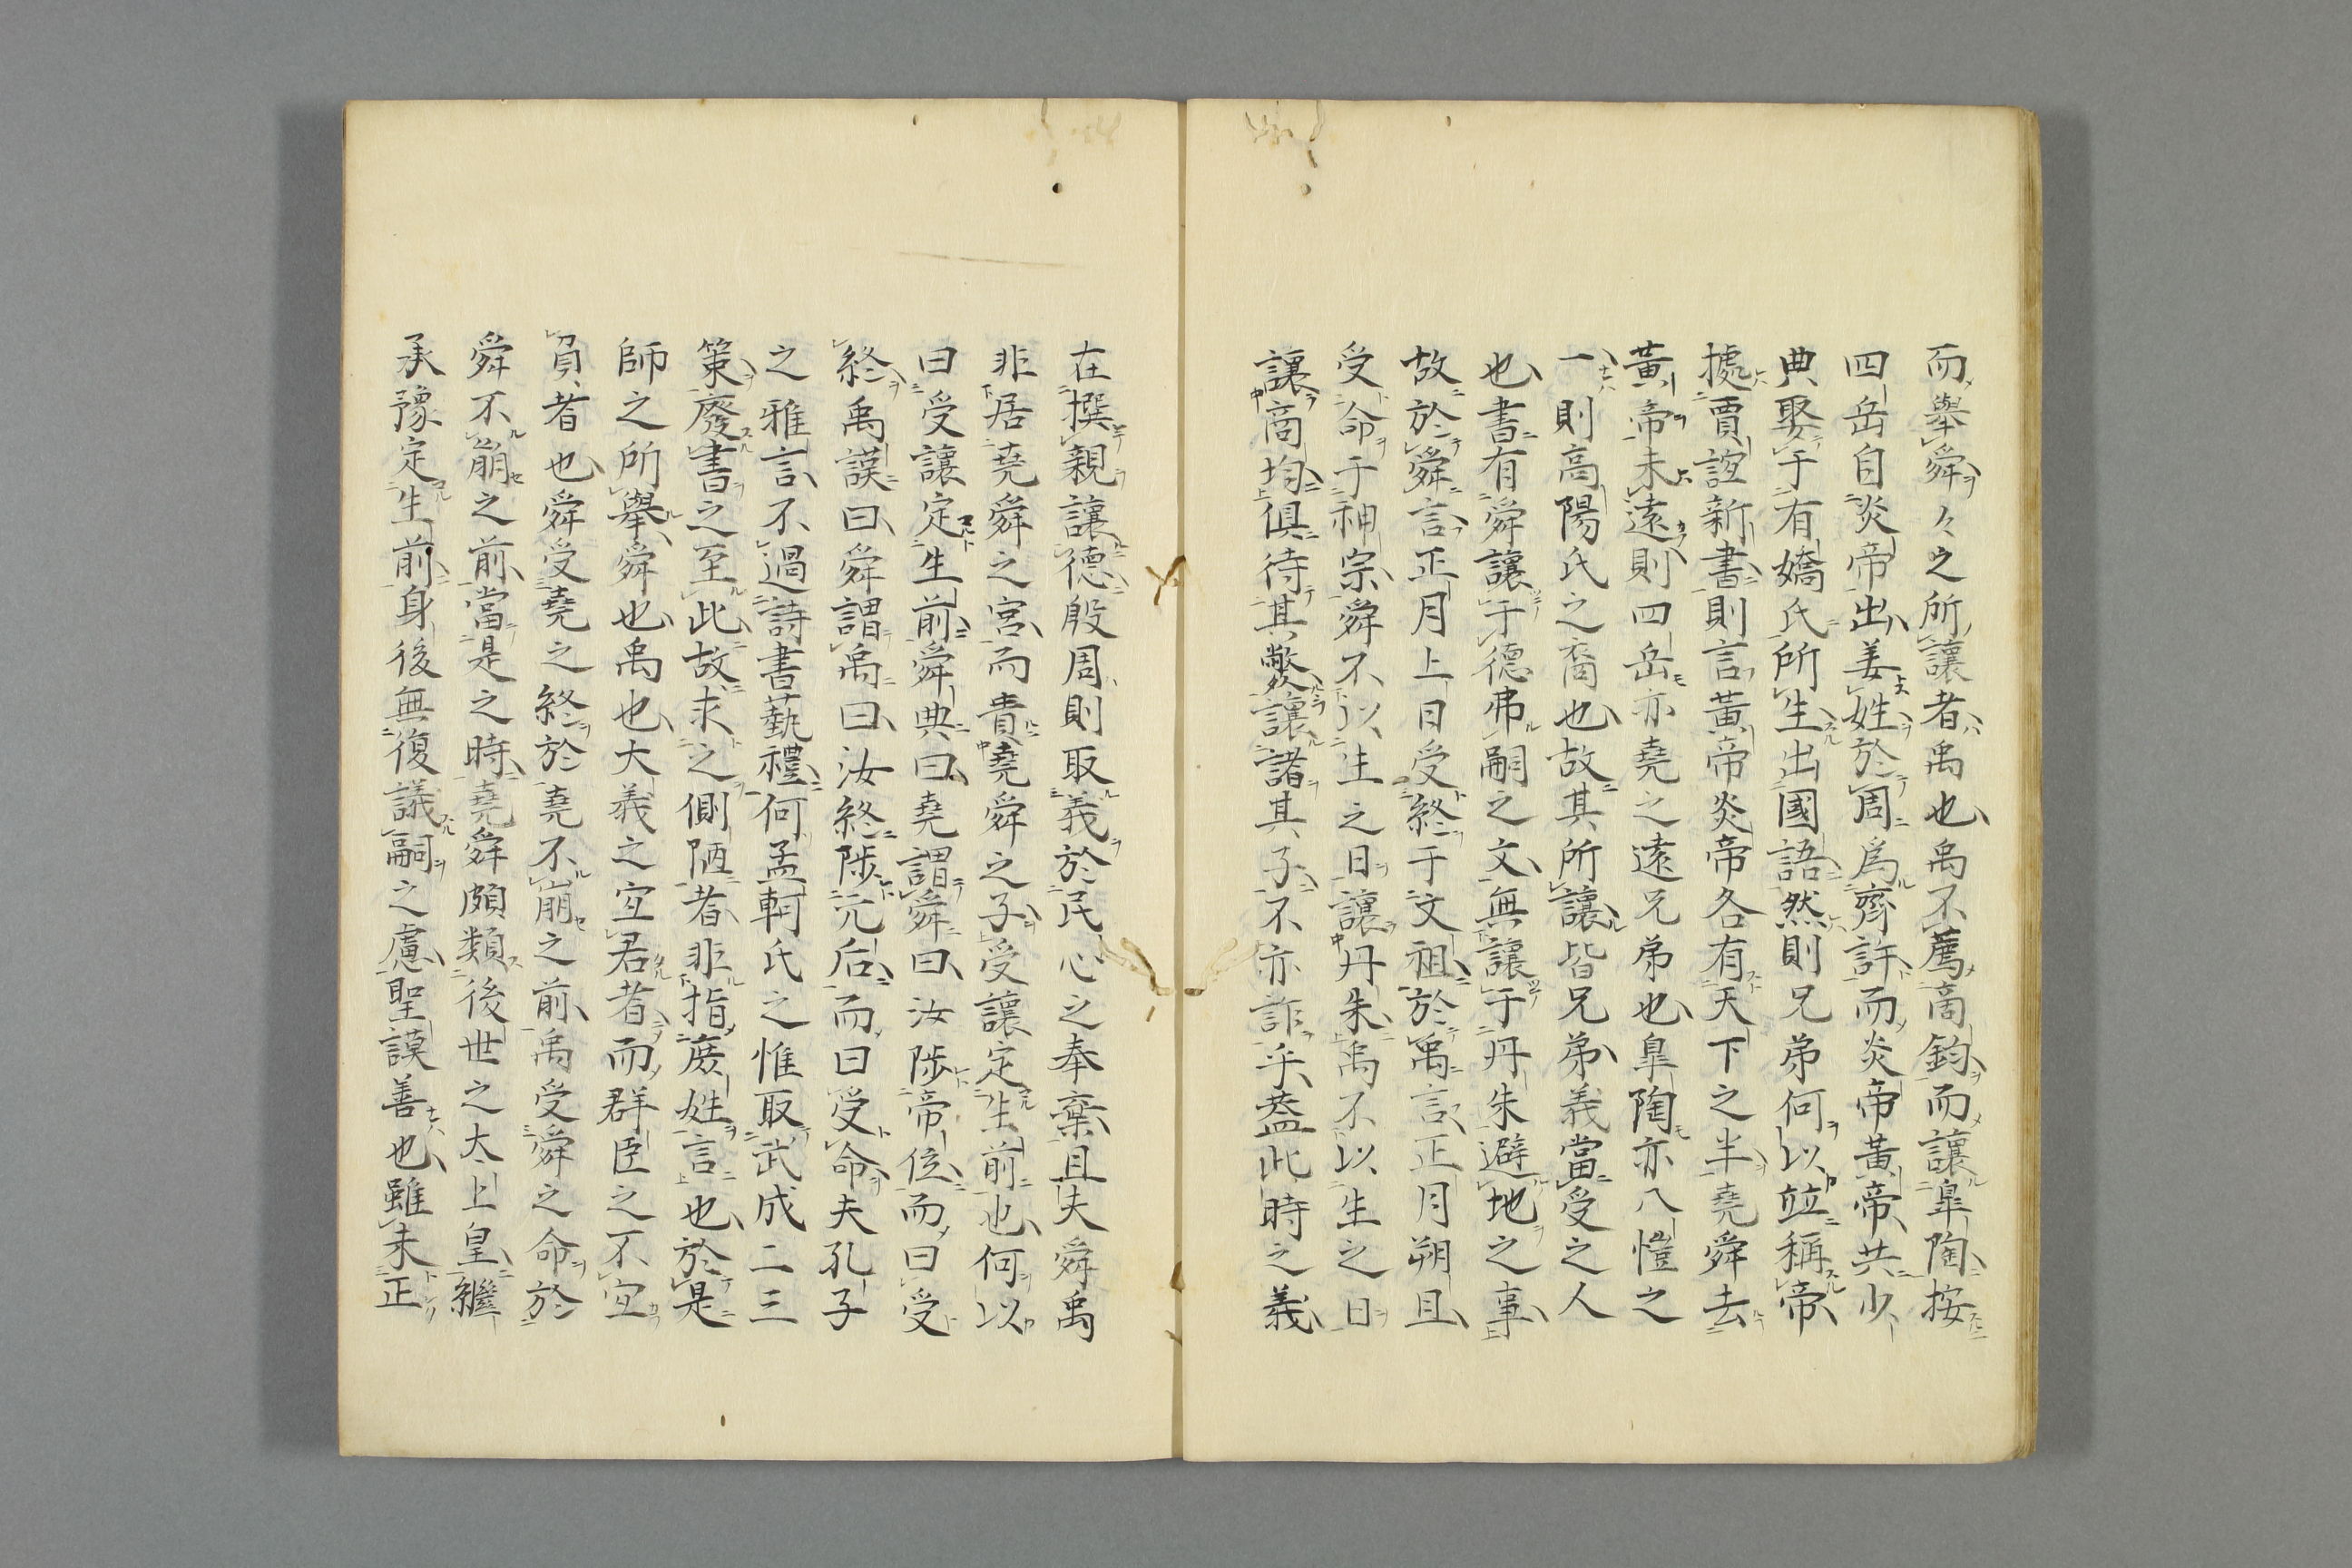 而舉舜々之所讓者禹也禹不薦商鈞而讓皐陶按
四岳自炎帝出姜姓於周爲齊許而炎帝黃帝共少
典娶于有嬌氏所生出國語然則兄弟何以竝稱帝
據賈誼新書則言黃帝炎帝各有天下之半堯舜去
黃帝未遠則四岳亦堯之遠兄弟也皐陶亦八愷之
一則高陽氏之裔也故其所讓皆兄弟義當受之人
也書有舜讓于德弗嗣之文無讓于丹朱避地之事
故於舜言正月上日受終于文祖於禹言正月朔旦
受命于神宗舜不以生之日讓丹朱禹不以生之日
讓商均俱待其斃讓諸其子不亦詐乎蓋此時之義
在撰親讓德殷周則取義於民心之奉棄且夫舜禹
非居堯舜之宮而貴堯舜之子受讓定生前也何以
曰受讓定生前舜典曰堯謂舜曰汝陟帝位而曰受
終禹謨曰舜謂禹曰汝終陟元后而曰受命夫孔子
之雅言不過詩書藝禮何孟軻氏之惟取武成二三
策廢書之至此故求之側陋者非指庻姓言也於是
師之所舉舜也禹也大義之宜君者而群臣之不宜
負者也舜受堯之終於堯不崩之前禹受舜之命於
舜不崩之前當是之時堯舜頗類後世之太上皇繼
承豫定生前身後無復議嗣之慮聖謨善也雖未正